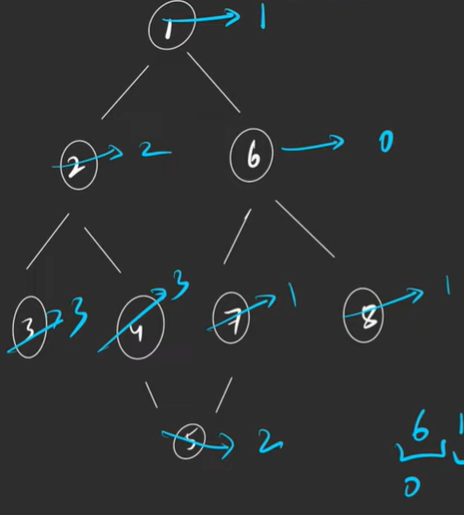 1 1
2 2 6 0
3 3 4 3 7 1 8 1
5 2
6
0